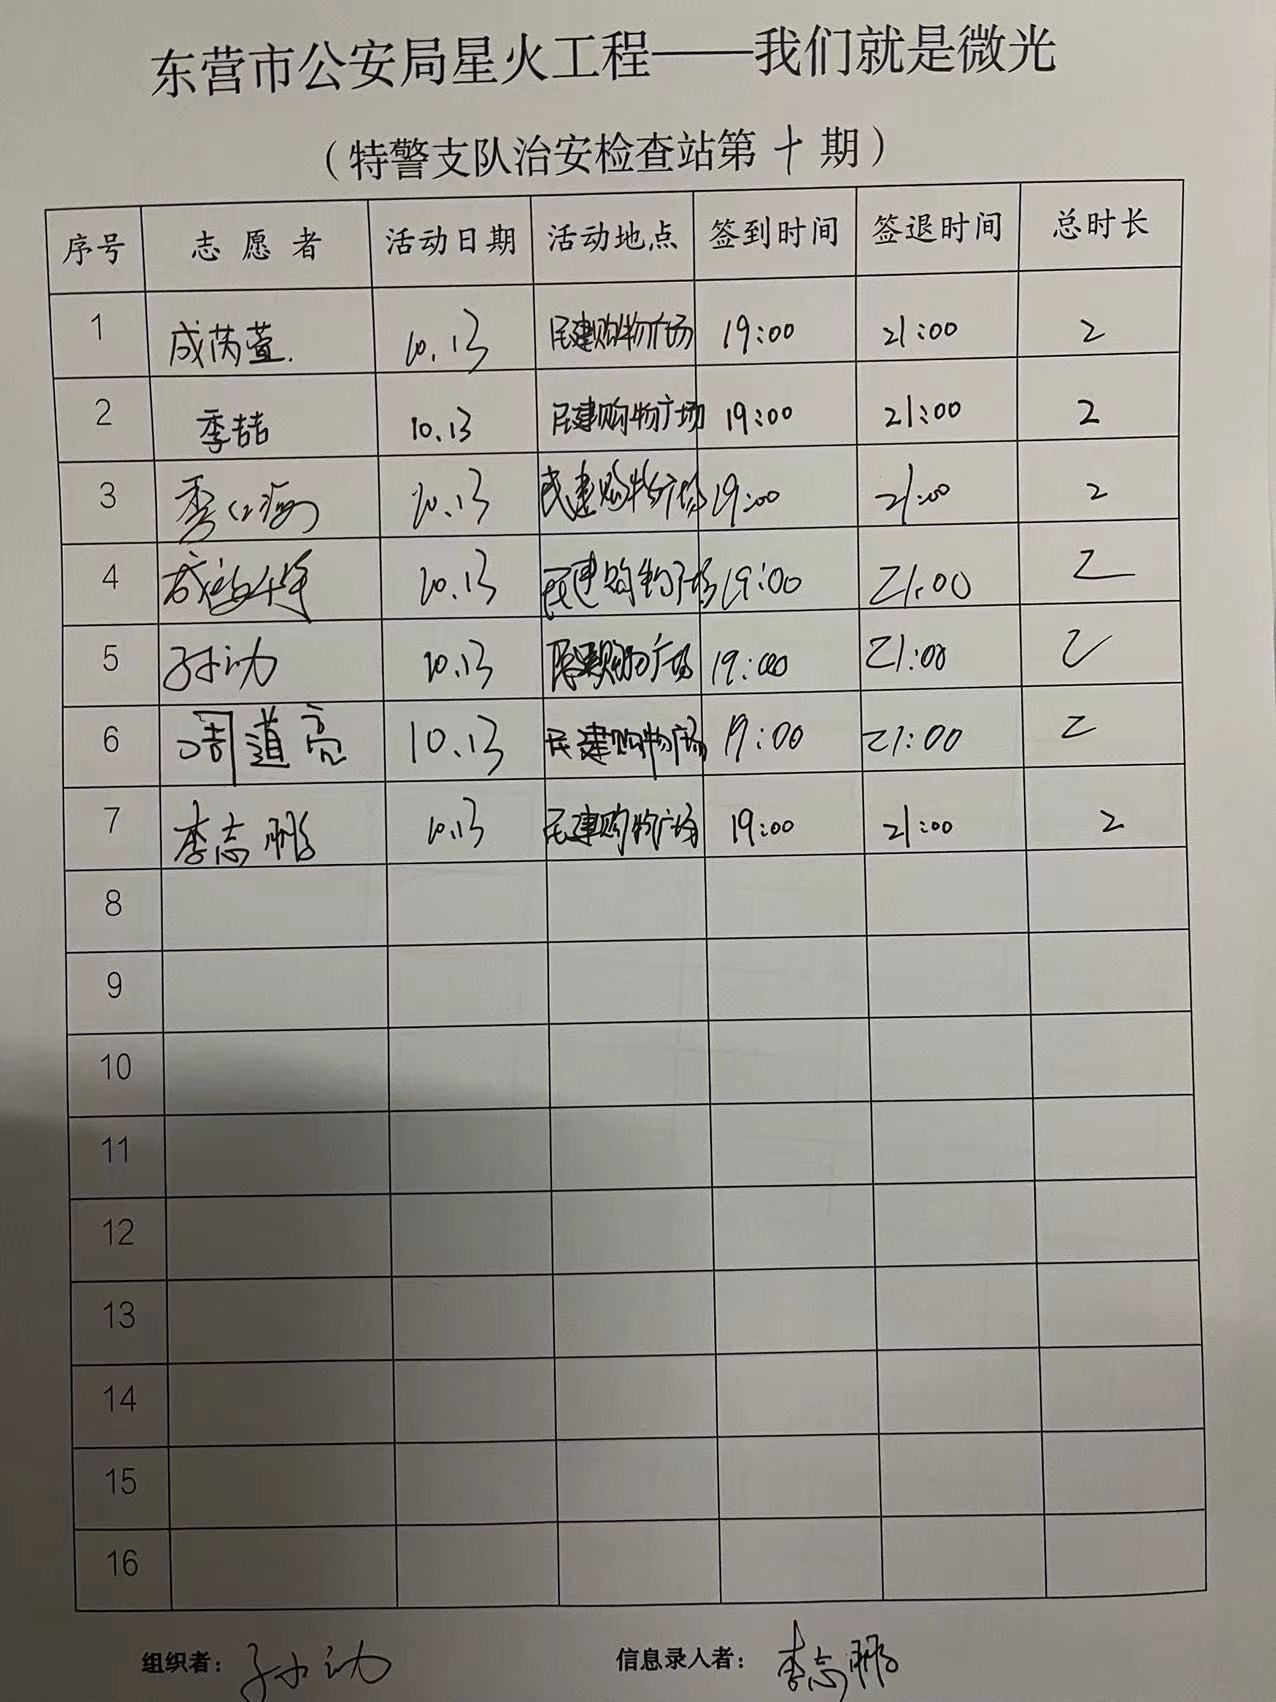 东营市公安局星火工程——我们就是微光
（特警支队治安检查站第十期）
序号 志愿者 活动日期 活动地点 签到时间 签退时间 总时长
1 成芮萱. 10.13 民建购物广场 19:00 21:00 2
2 季喆 10.13 民建购物广场 19:00 21:00 2
3 10.13 民建购物广场 19:00 21:00 2
4 10.13 民建购物广场 19:00 21:00 2
5 孙功 10.13 民建购物广场 19:00 21:00 2
6 周道亮 10.13 民建购物广场 19:00 21:00 2
7 李志鹏 10.13 民建购物广场 19:00 21:00 2
8
9
10
11
12
13
14
15
16
组织者： 孙功 信息录入者： 李志鹏